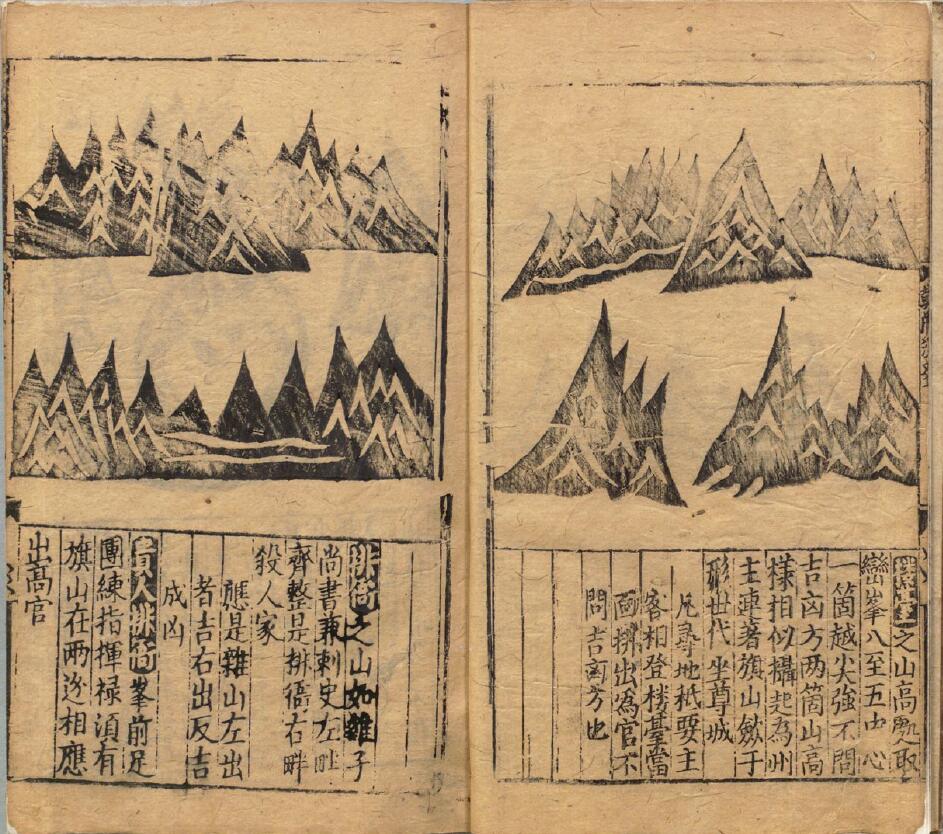 之山高處取
巒峯八至五中心
一箇越尖強不問
吉凶方两箇山高
様相似攝起為州
主連著旗山歛子
形世代坐尊城
凡尋地秪要主
客相登楼䑓當
面排出為官不
問吉凶方也
排衙之山如雞子
尚書兼刺史左畔
齊整是排衙右畔
殺人家
應是雞山左出
者吉右出反吉
成凶
貴人排衙峯前足
團練指揮禄湏有
旗山在两邊相應
出高官